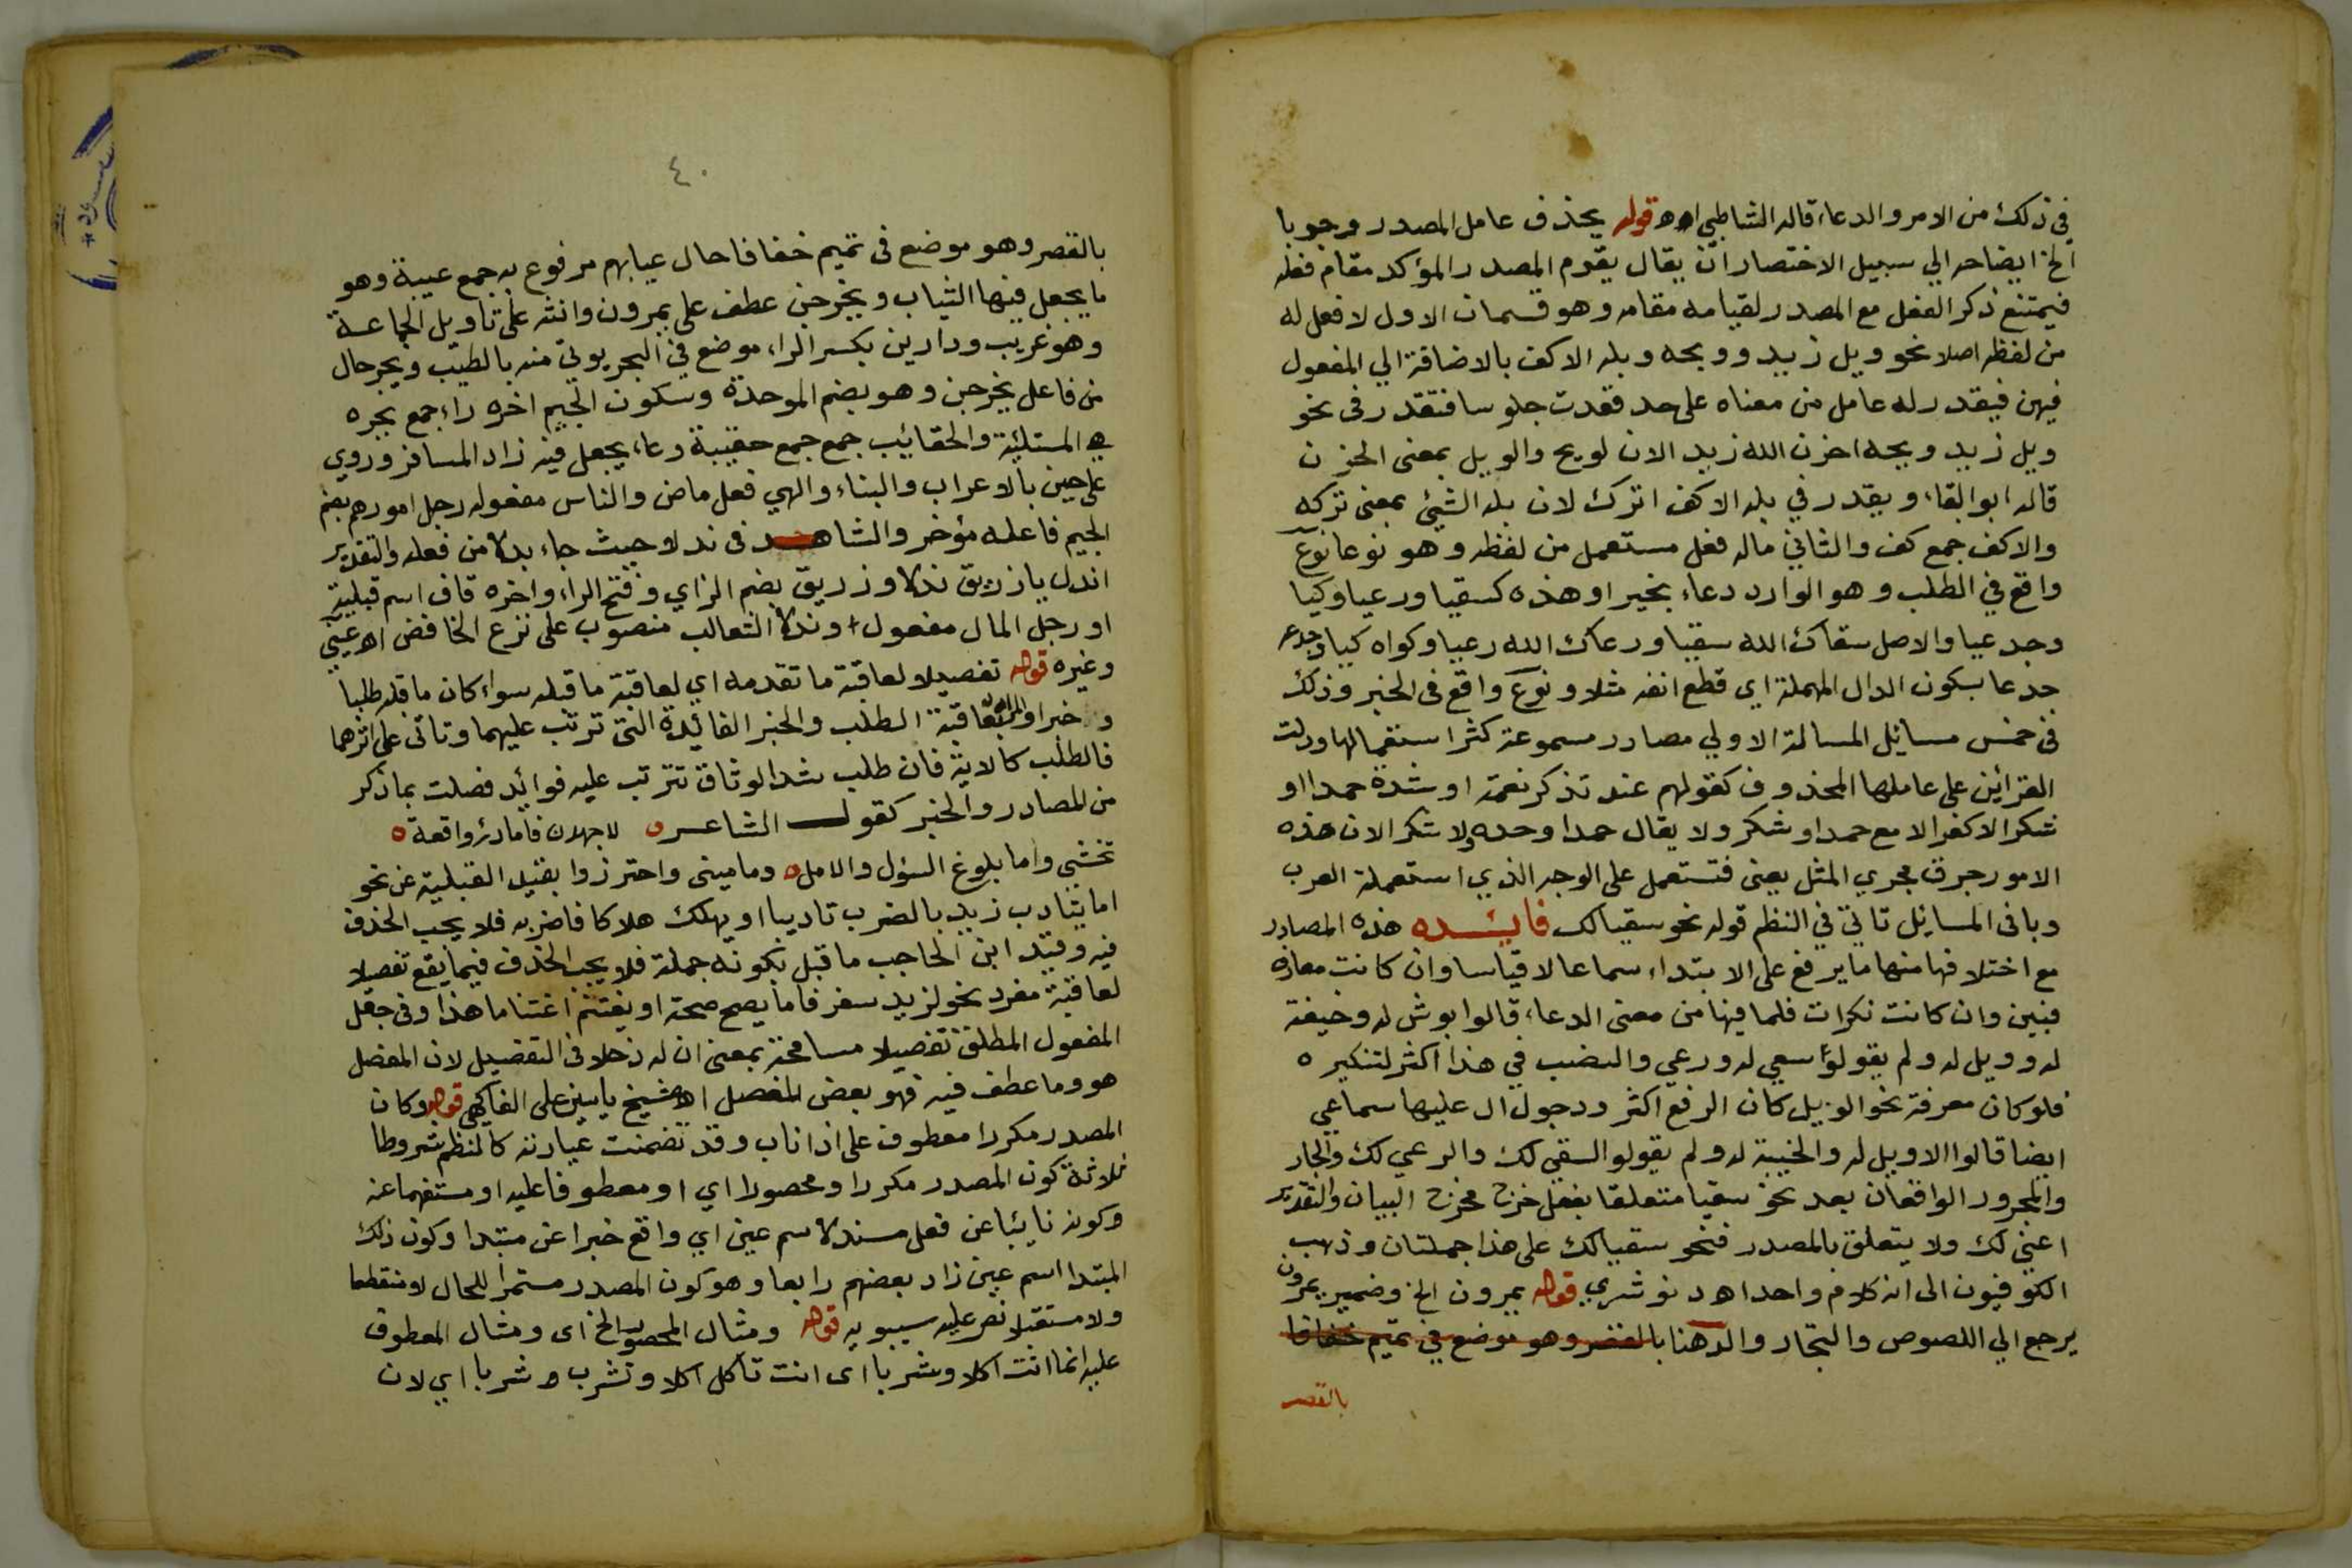 في ذلك من الامر والدعاء قاله الشاطبي اهـ قوله يحذف عامل المصدر وجوبا
الخ ايضاحه الي سبيل الاختصار ان يقال يقوم المصدر المؤكد مقام فعله
فيمتنع ذكر الفعل مع المصدر لقيامه مقامه وهو قسمان الاول لا فعل له
من لفظه اصلا نحو ويل زيد وويحه وبله الاكف بالاضافة الي المفعول
فيهن فيقدر له عامل من معناه على حد قعدت جلوسا فتقدر في نحو
ويل زيد ويحه احزن الله زيد الان لويح والويل بمعنى الحزن
قاله ابو البقاء ويقدر في بله الاكف اترك لان بله الشيئ بمعنى تركه
والاكف جمع كف والثاني ماله فعل مستعمل من لفظه وهو نوعا نوع
واقع في الطلب وهو الوارد دعاء بخير او هذه كسقيا ورعيا وكيا
وجدعيا والاصل سقاك الله سقيا ورعاك الله رعيا وكواه كيا وجدعه
جدعا بسكون الدال المهملة اي قطع انفه مثلا ونوع واقع في الخبر وذلك
في خمس مسايل المسالة الاولي مصادر مسموعة كثر استعمالها ودلت
القرائن على عاملها المحذوف كقولهم عند تذكر نعمة او شدة حمدا او
شكرا لا كفرا لا مع حمد او شكر ولا يقال حمدا وحده ولا شكرا لان هذه
الامور جرت مجري المثل يعني فتستعمل على الوجه الذي استعملة العرب
وباقي المسايل تاتي في النظم قوله نحو سقيا لك فايـده هذه المصادر
مع اختلافها منها ما يرفع على الابتداء سماعا لا قياسا وان كانت معارف
فبين وان كانت نكرات فلما فيها من معنى الدعاء قالوا بوش له وخيفة
له وويل له ولم يقولوا سعي له ورعي والنصب في هذا اكثر لتنكيره
فلو كان معرفة نحو الويل كان الرفع اكثر ودجول ال عليها سماعي
ايضا قالوا الاويل له والخيبة له ولم يقولو السقي لك والرعي لك والجار
والمجرور الواقعان بعد نحو سقيا متعلقا بفعل خرج مخرج البيان والتقدير
اعني لك ولا يتعلق بالمصدر فنحو سقيا لك على هذا جملتان وذهب
الكوفيون الى انه كلام واحد اهـ د نوشري قوله يمرون الخ وضمير يمرون
يرجع الي اللصوص والتجار والدهنا بالقصر وهو موضع في تميم خفافا
بالقصر
٤٠
بالقصر وهو موضع في تميم خفافا حال عيابهم مرفوع به جمع عيبة وهو
ما يجعل فيها الثياب ويخرجن عطف على يمرون وانثه على تاويل الجماعة
وهو غريب ودارين بكسر الراء موضع في البحر يوتى منه بالطيب وبجر حال
من فاعل يخرجن وهو بضم الموحدة وسكون الجيم اخره راء جمع بجره
هي الممتلئة والحقائب جمع جمع حقيبة وعاء يجعل فيه زاد المسافر وروي
على حين بالاعراب والبناء والهي فعل ماض والناس مفعوله رجل امورهم بضم
الجيم فاعله مؤخر والشاهـد في ندلا حيث جاء بدلا من فعله والتقدير
اندل يا زريق ندلا وزريق بضم الزاي وفتح الراء واخره قاف اسم قبيلة
او رجل المال مفعول وندلا الثعالب منصوب على نزع الخافض اهـ عيني
وغيره قوله تفصيلا لعاقبة ما تقدمه اي لعاقبة ما قبله سواء كان ما قبله طلبا
وخبرا والمراد بعاقبة الطلب والخبر الفائدة التي ترتب عليهما وتاتى على اثرهما
فالطلب كالاية فان طلب شد الوثاق تترتب عليه فوائد فصلت بما ذكر
من المصادر والخبر كقول الشاعر ه لاجهدن فاما درء واقعة ه
تخشي واما بلوغ السؤل والامل ه وما ميني واحترزوا بقيد القبلية عن نحو
اما يتادب زيد بالضرب تاديبا او يهلك هلاكا فاضربه فلا يجب الحذف
فيه وقيد ابن الحاجب ما قبل بكونه جملة فلا يجب الحذف فيما يقع تفصيلا
لعاقبة مفرد نحو لزيد سفر فاما يصح صحة او يغتنم اغتناما هذا وفي جعل
المفعول المطلق تفصيلا مسامحة بمعنى ان له دخلا في التفصيل لان المفصل
هو وما عطف فيه فهو بعض المفصل اهـ شيخ ياسين على الفاكهي قوله وكان
المصدر مكررا معطوف على اذا ناب وقد تضمنت عبارته كالنظم شروطا
ثلاثة كون المصدر مكررا ومحصورا اي او معطوفا عليه او مستفهما عنه
وكونه نايئبا عن فعل مسند لاسم عين اي واقع خبرا عن مبتدا وكون ذلك
المبتدا اسم عين زاد بعضهم رابعا وهو كون المصدر مستمرا للحال لا منقطعا
ولا مستقبلا نص عليه سيبويه قوله ومثال المحصور الخ اى ومثال المعطوف
عليه انما انت اكلا وشربا اى انت تاكل اكلا وتشرب وشربا اي لان